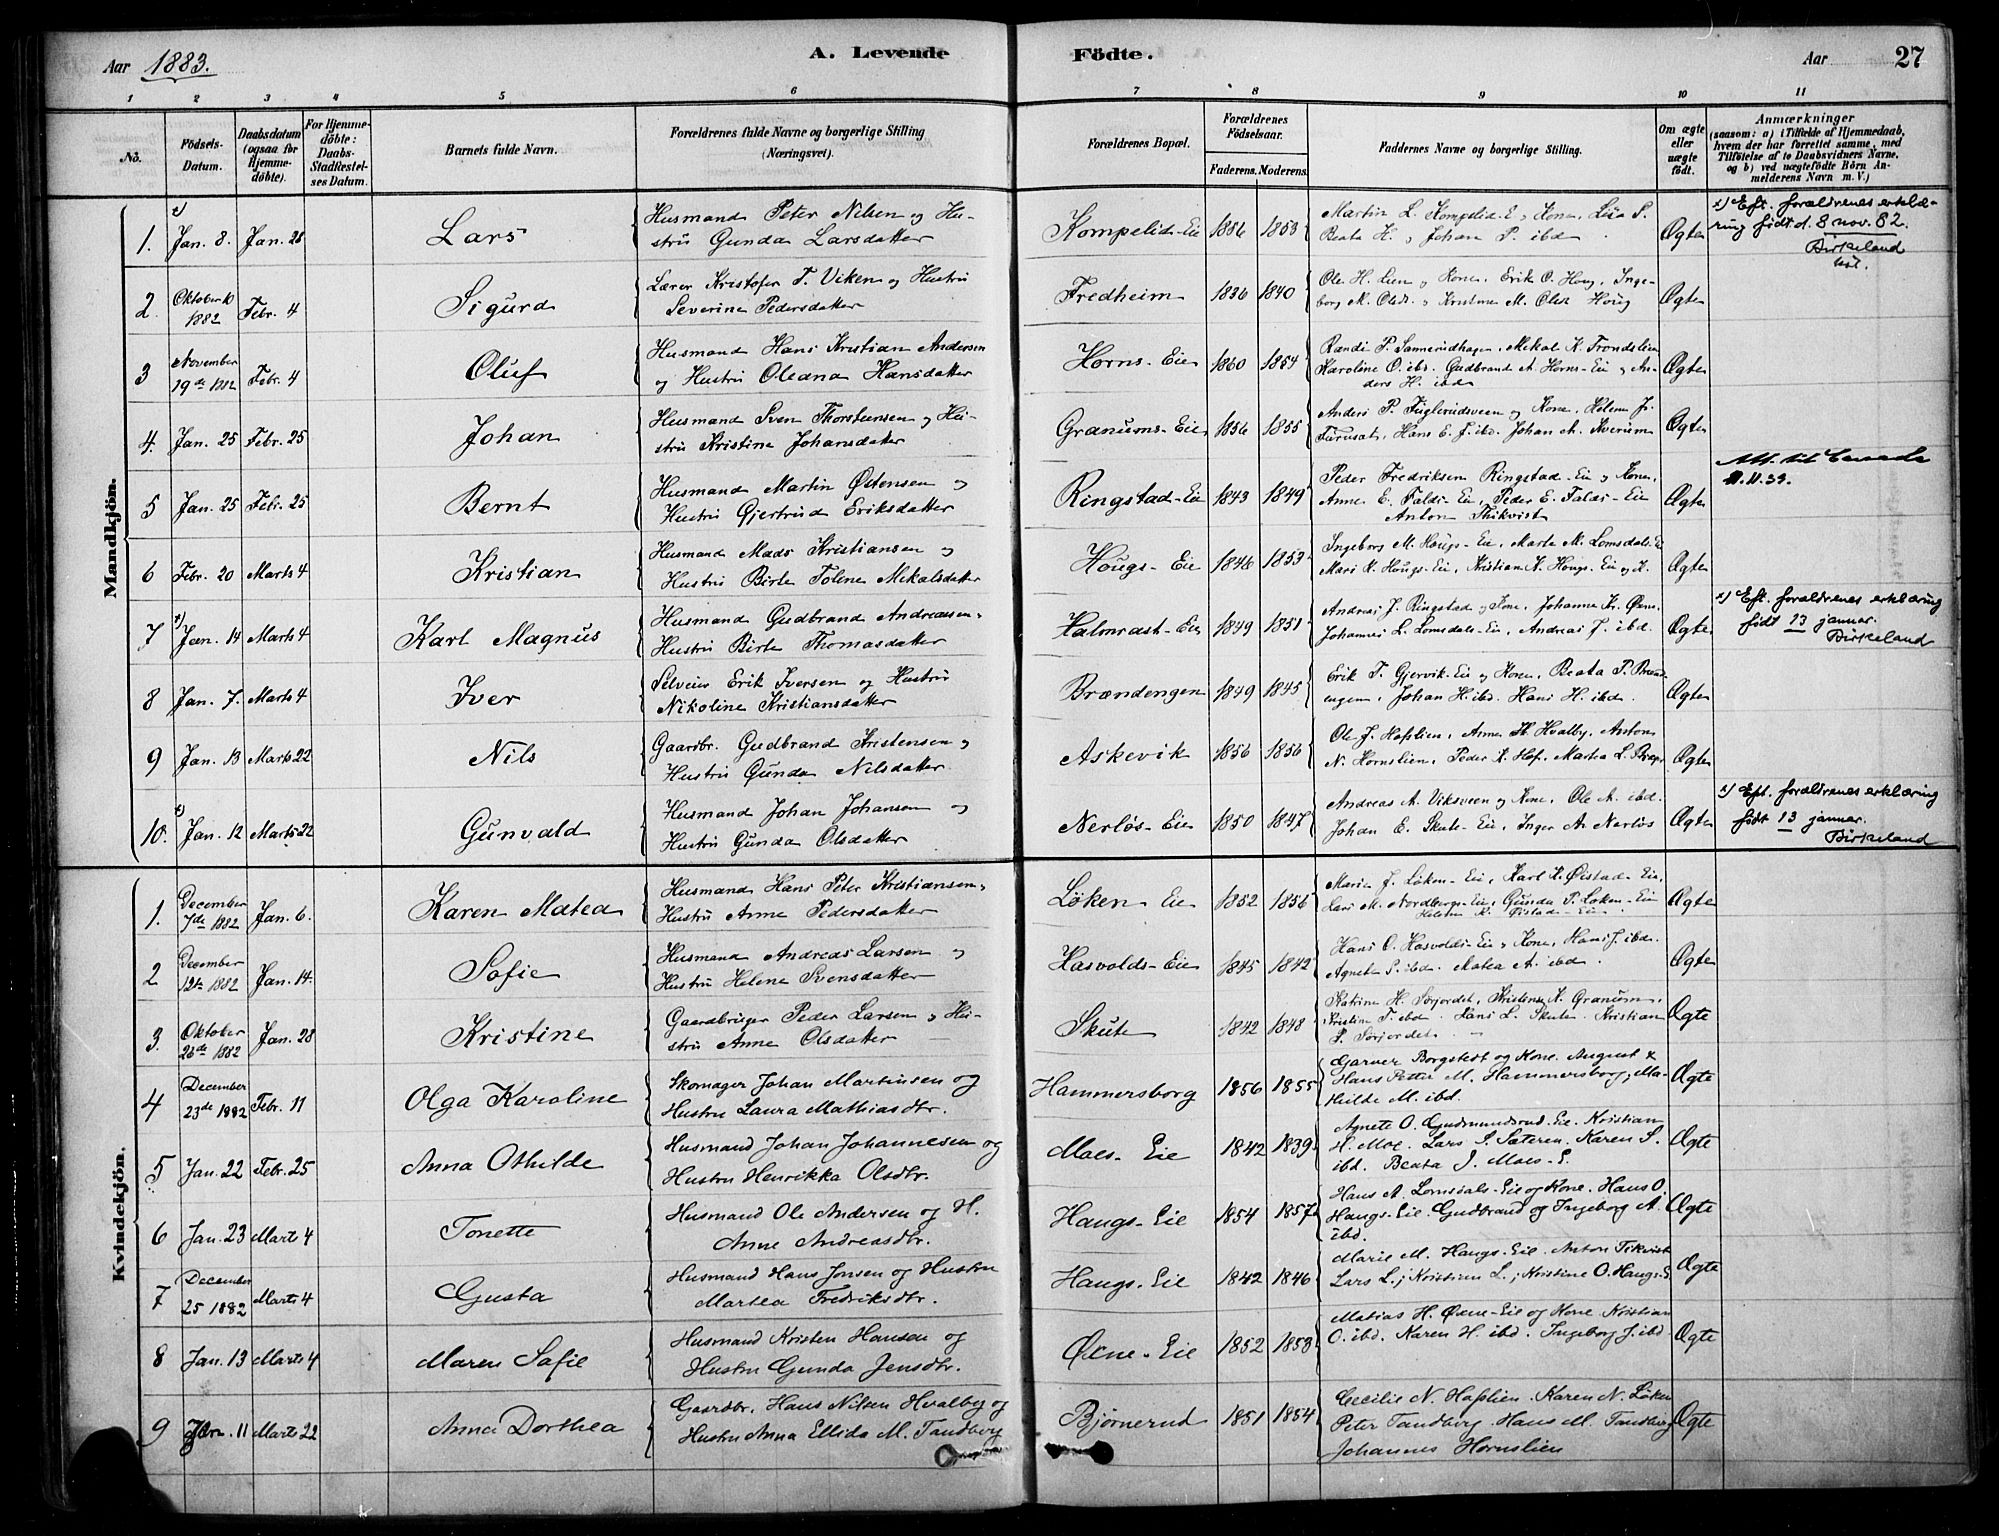 Aar 1883. A. Levende Födte. Aar 27
1 2 3 4 5 6 7 8 9 10 11
No. Födsels-Datum. Daabsdatum (ogsaa for Hjemmedöbte). For Hjemmedöbte: Daabs-Stadfestelses Datum. Barnets fulde Navn. Forældrenes fulde Navne og borgerlige Stilling (Næringsvei). Forældrenes Bopæl. Forældrenes Födselsaar. Faderens. Moderens. Faddernes Navne og borgerlige Stilling. Om ægte eller uægte födt. Anmærkninger (saasom: a) i Tilfælde af Hjemmedaab, hvem der har forrettet samme, med Tilföielse af to Daabsvidners Navne, og b) ved uægtefödte Börn Anmelderens Navn m. V.)
Mandkjön.
1. x) Jan. 8. Jan. 28 Lars Husmand Peter Nilsen og Hu-
stru Gunda Larsdatter Kompelid-Eie 1856 1853 Martin L. Kompelid-E. og Kone, Lisa P.
Beata H. og Johan P. ibd. Ægte x) Eft. forældrenes erklæ-
ring født d. 8 nov. 82.
Birkeland
2. Oktober 10 1882 Febr. 4 Sigurd Lærer Kristofer T. Viken og Hustru
Severine Pedersdatter Fredheim 1836 1840 Ole H. Lien og Kone, Erik O. Houg, Inge-
borg M. Olsdr. og Kristine M. Olsdr Houg Ægte
3 November 19de 1882 Febr. 4 Oluf Husmand Hans Kristian Andersen
og Hustru Oleana Hansdatter Horns-Eie 1860 1854 Randi P. Sannerudhagen, Mikal K. Trondslien
Karoline O. ibd. Gudbrand A. Horns-Eie og An-
ders H. ibd Ægte
4. Jan. 25 Febr. 25 Johan Husmand Sven Thorstensen og Hu-
stru Kristine Johansdatter Granums-Eie 1856 1855 Anders P. Fuglerudsveen og Kone, Helene J.
Furusat, Hans E. J. ibd. Johan A. Kverum Ægte
5 Jan. 25 Febr. 25 Bernt Husmand Martin Østensen og
Hustru Gjertrud Eriksdatter Ringstad-Eie 1843 1849 Peder Fredriksen Ringstad-Eie og Kone,
Anne E. Falds-Eie, Peder E. Falds-Eie
Anton Thikvist Ægte Att. til
11.11.39.
6 Febr. 20 Marts 4 Kristian Husmand Mads Kristiansen og
Hustru Birte Tolene Mikalsdatter Hougs-Eie 1846 1853 Ingeborg M. Hougs-Eie, Marte M. Lomsdals-E
Mari K. Hougs-Eie, Kristian K. Hougs-Eie og K. Ægte
7 x) Jan. 14 Marts 4 Karl Magnus Husmand Gudbrand Andreassen,
Hustru Birte Thomasdatter Halmrast-Eie 1849 1851 Andreas J. Ringstad og Kone, Johanne Kr. Øxne
Johannes L. Lomsdals-Eie, Andreas J. ibd. Ægte x) Eft. forældrenes erklæring
født 13 januar.
Birkeland
8 Jan. 7. Marts 4 Iver Selveier Erik Iversen og Hustru
Nikoline Kristiansdatter Brændengen 1849 1845 Erik T. Gjervik-Eie og Kone, Beata P. Brænd-
engen, Johan H. ibd. Hans H. ibd. Ægte
9 Jan. 13 Marts 22 Nils Gaardbr. Gudbrand Kristensen og
Hustru Gunda Nilsdatter Askevik 1856 1856 Ole J. Hofslien, Anne St. Hvalby, Anton
N. Hornslien, Peder K. Hof, Martha L. Ægte
10. x) Jan. 12 Marts 22 Gunvald Husmand Johan Johansen og
Hustru Gunda Olsdatter Nerløs-Eie 1850 1847 Andreas A. Viksveen og Kone, Ole A. ibd.
Johan E. Skute-Eie, Inger A. Nerløs Ægte x) Eft. forældrenes erklæring
født 13 januar.
Birkeland
Kvindekjön.
1. December 7de 1882 Jan. 6. Karen Matea Husmand Hans Peter Kristiansen,
Hustru Anne Pedersdatter Løken-Eie 1852 1856 Maria J. Løken-Eie, Karl K. Øistad-Eie,
Lars M. Nordbergs-Eie, Gunda P. Løken-Eie
K. Øistad-Eie Ægte
2 December 12te 1882 Jan. 14. Sofie Husmand Andreas Larsen og
Hustru Helene Svensdatter Hasvolds-Eie 1845 1842 Hans O. Hasvolds-Eie og Kone, Hans J. ibd.
Agnete S. ibd. Matea A. ibd. Ægte
3. Oktober 26de 1882 Jan. 28 Kristine Gaardbruger Peder Larsen og Hu-
stru Anne Olsdatter Skute 1842 1848 Katrine H. Sørjordet, Kristense K. Granum,
Kristine T. ibd. Hans L. Skute. Kristian
P. Sørjordet Ægte
4 December 23de 1882 Febr. 11 Olga Karoline Skomager Johan Martinsen og
Hustru Laura Mathiasdtr. Hammersborg 1856 1855 Garver Borgstedt og Kone. August &
Hans Petter M. Hammersborg, Ma-
thilde M. ibd. Ægte
5 Jan. 22 Febr. 25 Anna Othilde Husmand Johan Johannesen og
Hustru Henrikka Olsdtr. Moes-Eie 1842 1839 Agnete O. Gudmundsrud-Eie. Kristian
H. Moe. Lars S. Sæteren. Karen S.
ibd. Beata J. Moes-E. Ægte
6 Jan. 23 Marts 4 Tonette Husmand Ole Andersen og H.
Anne Andreasdtr. Haugs-Eie 1854 1857 Hans A. Lomsdals-Eie og Kone. Hans O.
Haugs-Eie. Gudbrand og Ingeborg A.
ibd. Ægte
7 December 25 1882 Marts 4 Gusta Husmand Hans Jonsen og Hustru
Marthea Fredriksdtr. Haugs-Eie 1842 1846 Marie M. Haugs-Eie. Anton Tikvist
Lars L.; Kristian L.; Kristine O. Haugs-E. Ægte
8 Jan. 13 Marts 4 Maren Sofie Husmand Kristen Hansen og
Hustru Gunda Jensdtr. Øxne-Eie 1852 1853 Matias H. Øxne-Eie og Kone Kristian
O. ibd. Karen H. ibd. Ingeborg J. ibd. Ægte
9 Jan. 11 Marts 22 Anna Dorthea Gaardbr. Hans Nilsen Hvalby og
Hustru Anna Ellida M. Tandberg Bjørnerud 1851 1854 Cecilie N. Hofslien. Karen N. Løken
Peter Tandberg. Hans M. Tandberg
Johannes Hornslien Ægte